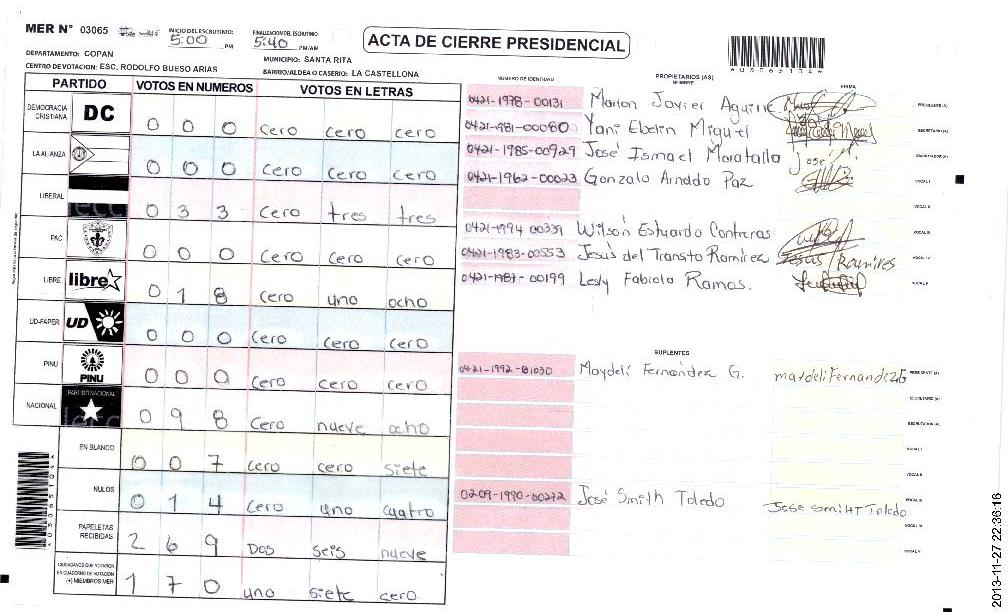 MER N° 03065
INICIO DEL ESCRUTINIO: 5:00 PM
FINALIZACION DEL ESCRUTINIO: 5:40 PM/AM
ACTA DE CIERRE PRESIDENCIAL
DEPARTAMENTO: COPAN
MUNICIPIO: SANTA RITA
CENTRO DE VOTACION: ESC. RODOLFO BUESO ARIAS
BARRIO/ALDEA O CASERIO: LA CASTELLONA
PARTIDO VOTOS EN NUMEROS VOTOS EN LETRAS
DEMOCRACIA CRISTIANA DC 0 0 0 cero cero cero
LA ALIANZA 0 0 0 cero cero cero
LIBERAL 0 3 3 cero tres tres
PAC 0 0 0 cero cero cero
LIBRE libre 0 1 8 cero uno ocho
UD-FAPER UD 0 0 0 cero cero cero
PINU PINU 0 0 0 cero cero cero
NACIONAL PARTIDO NACIONAL 0 9 8 cero nueve ocho
EN BLANCO 0 0 7 cero cero siete
NULOS 0 1 4 cero uno cuatro
PAPELETAS RECIBIDAS 2 6 9 Dos seis nueve
CIUDADANOS QUE VOTARON EN CUADERNO DE VOTACION (+) MIEMBROS MER 1 7 0 uno siete cero
NUMERO DE IDENTIDAD PROPIETARIOS (AS) NOMBRE FIRMA
0421-1978-00131 Marlon Javier Aguirre PRESIDENTE (A)
0421-981-00080 Yani Ebelin Miguel SECRETARIO (A)
0421-1985-00929 José Ismael Moratalla José ESCRUTADOR (A)
0421-1962-00023 Gonzalo Arnaldo Paz VOCAL I
VOCAL II
0421-1994 00339 Wilson Estuardo Contreras VOCAL III
0421-1983-00553 Jesús del Transito Ramirez Jesus Ramires VOCAL IV
0421-1987-00199 Lesly Fabiola Ramos. VOCAL V
SUPLENTES
0421-1992-01030 Maydeli Fernandez G. maydeli Fernandez G PRESIDENTE (A)
SECRETARIO (A)
ESCRUTADOR (A)
VOCAL I
VOCAL II
02-09-1990-00272 José Smith Toledo Jose smiHT Toledo VOCAL III
VOCAL IV
VOCAL V
2013-11-27 22:36:16